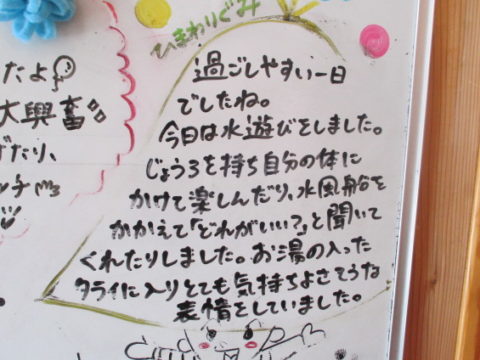 ひまわりぐみ
過ごしやすい一日
でしたね。
今日は水遊びをしました。
じょうろを持ち自分の体に
かけて楽しんだり、水風船を
かかえて「どれがいい?」と聞いて
くれたりしました。お湯の入った
タライに入りとても気持ちよさそうな
表情をしていました。
たよ
大興奮
ずたり、
ッチ